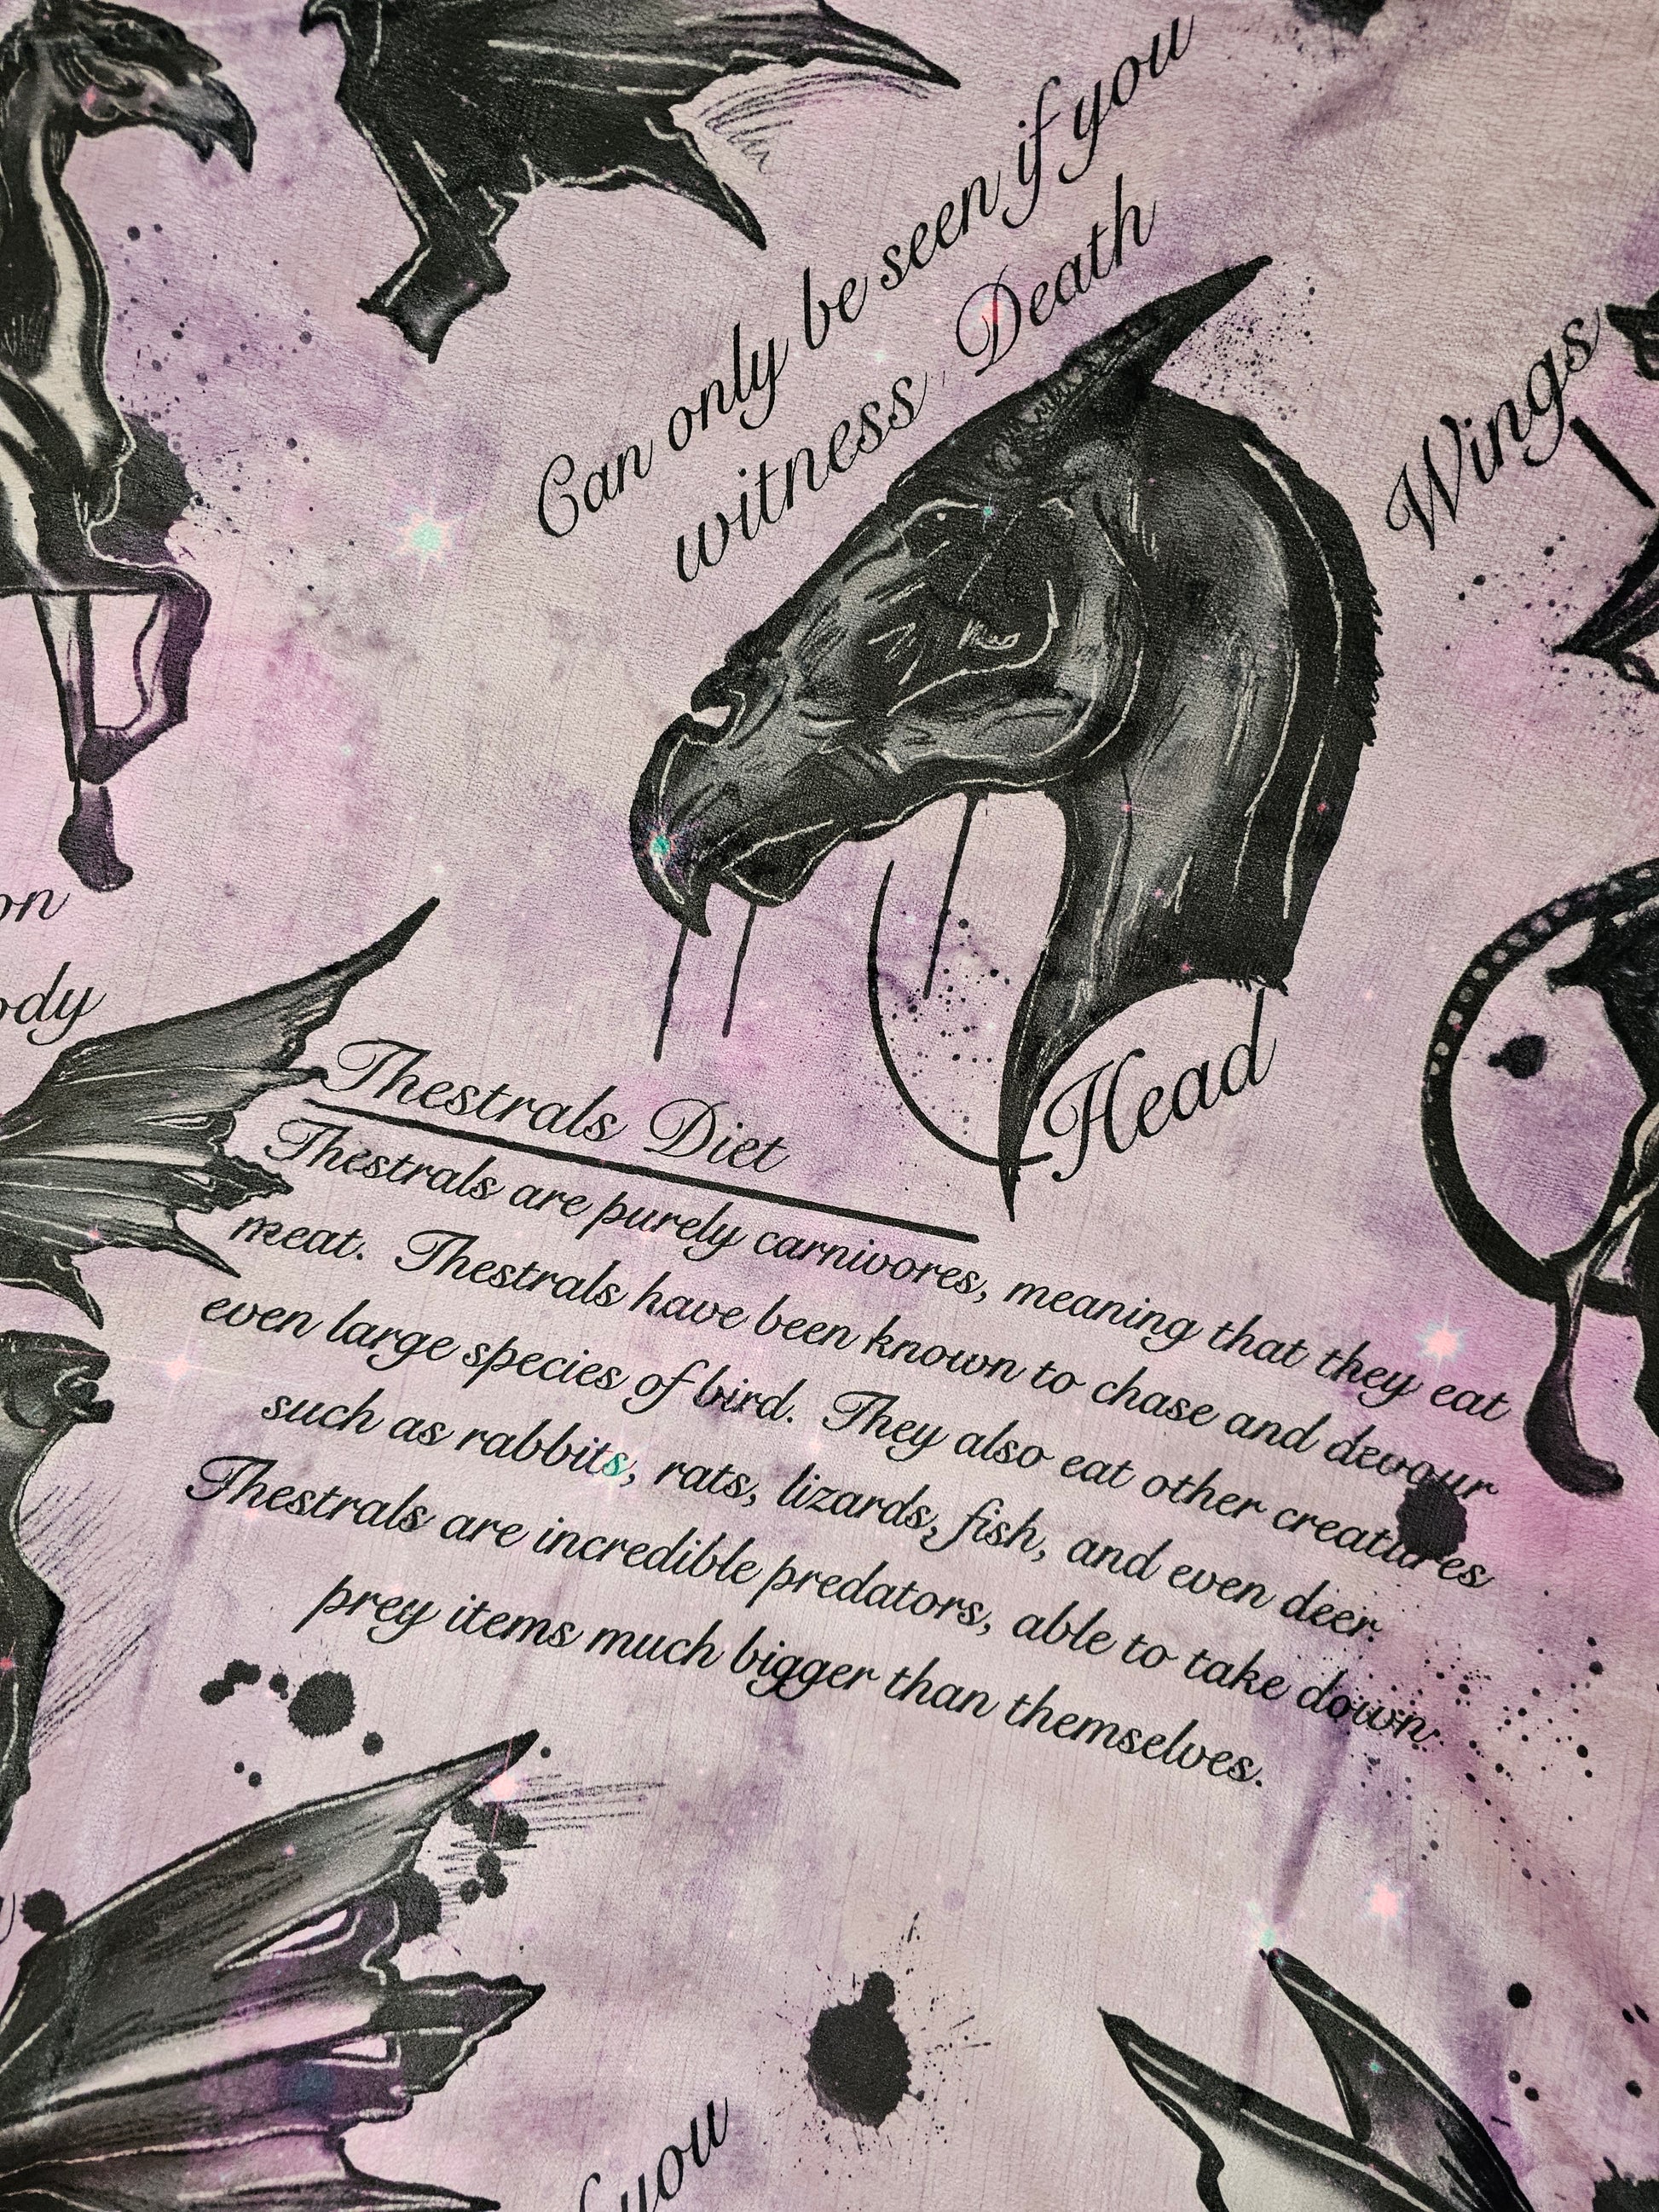 Can only be seen if you
witness Death
Wings
Head
on
ody
Thestrals Diet
Thestrals are purely carnivores, meaning that they eat
meat. Thestrals have been known to chase and devour
even large species of bird. They also eat other creatures
such as rabbits, rats, lizards, fish, and even deer.
Thestrals are incredible predators, able to take down
prey items much bigger than themselves.
f you